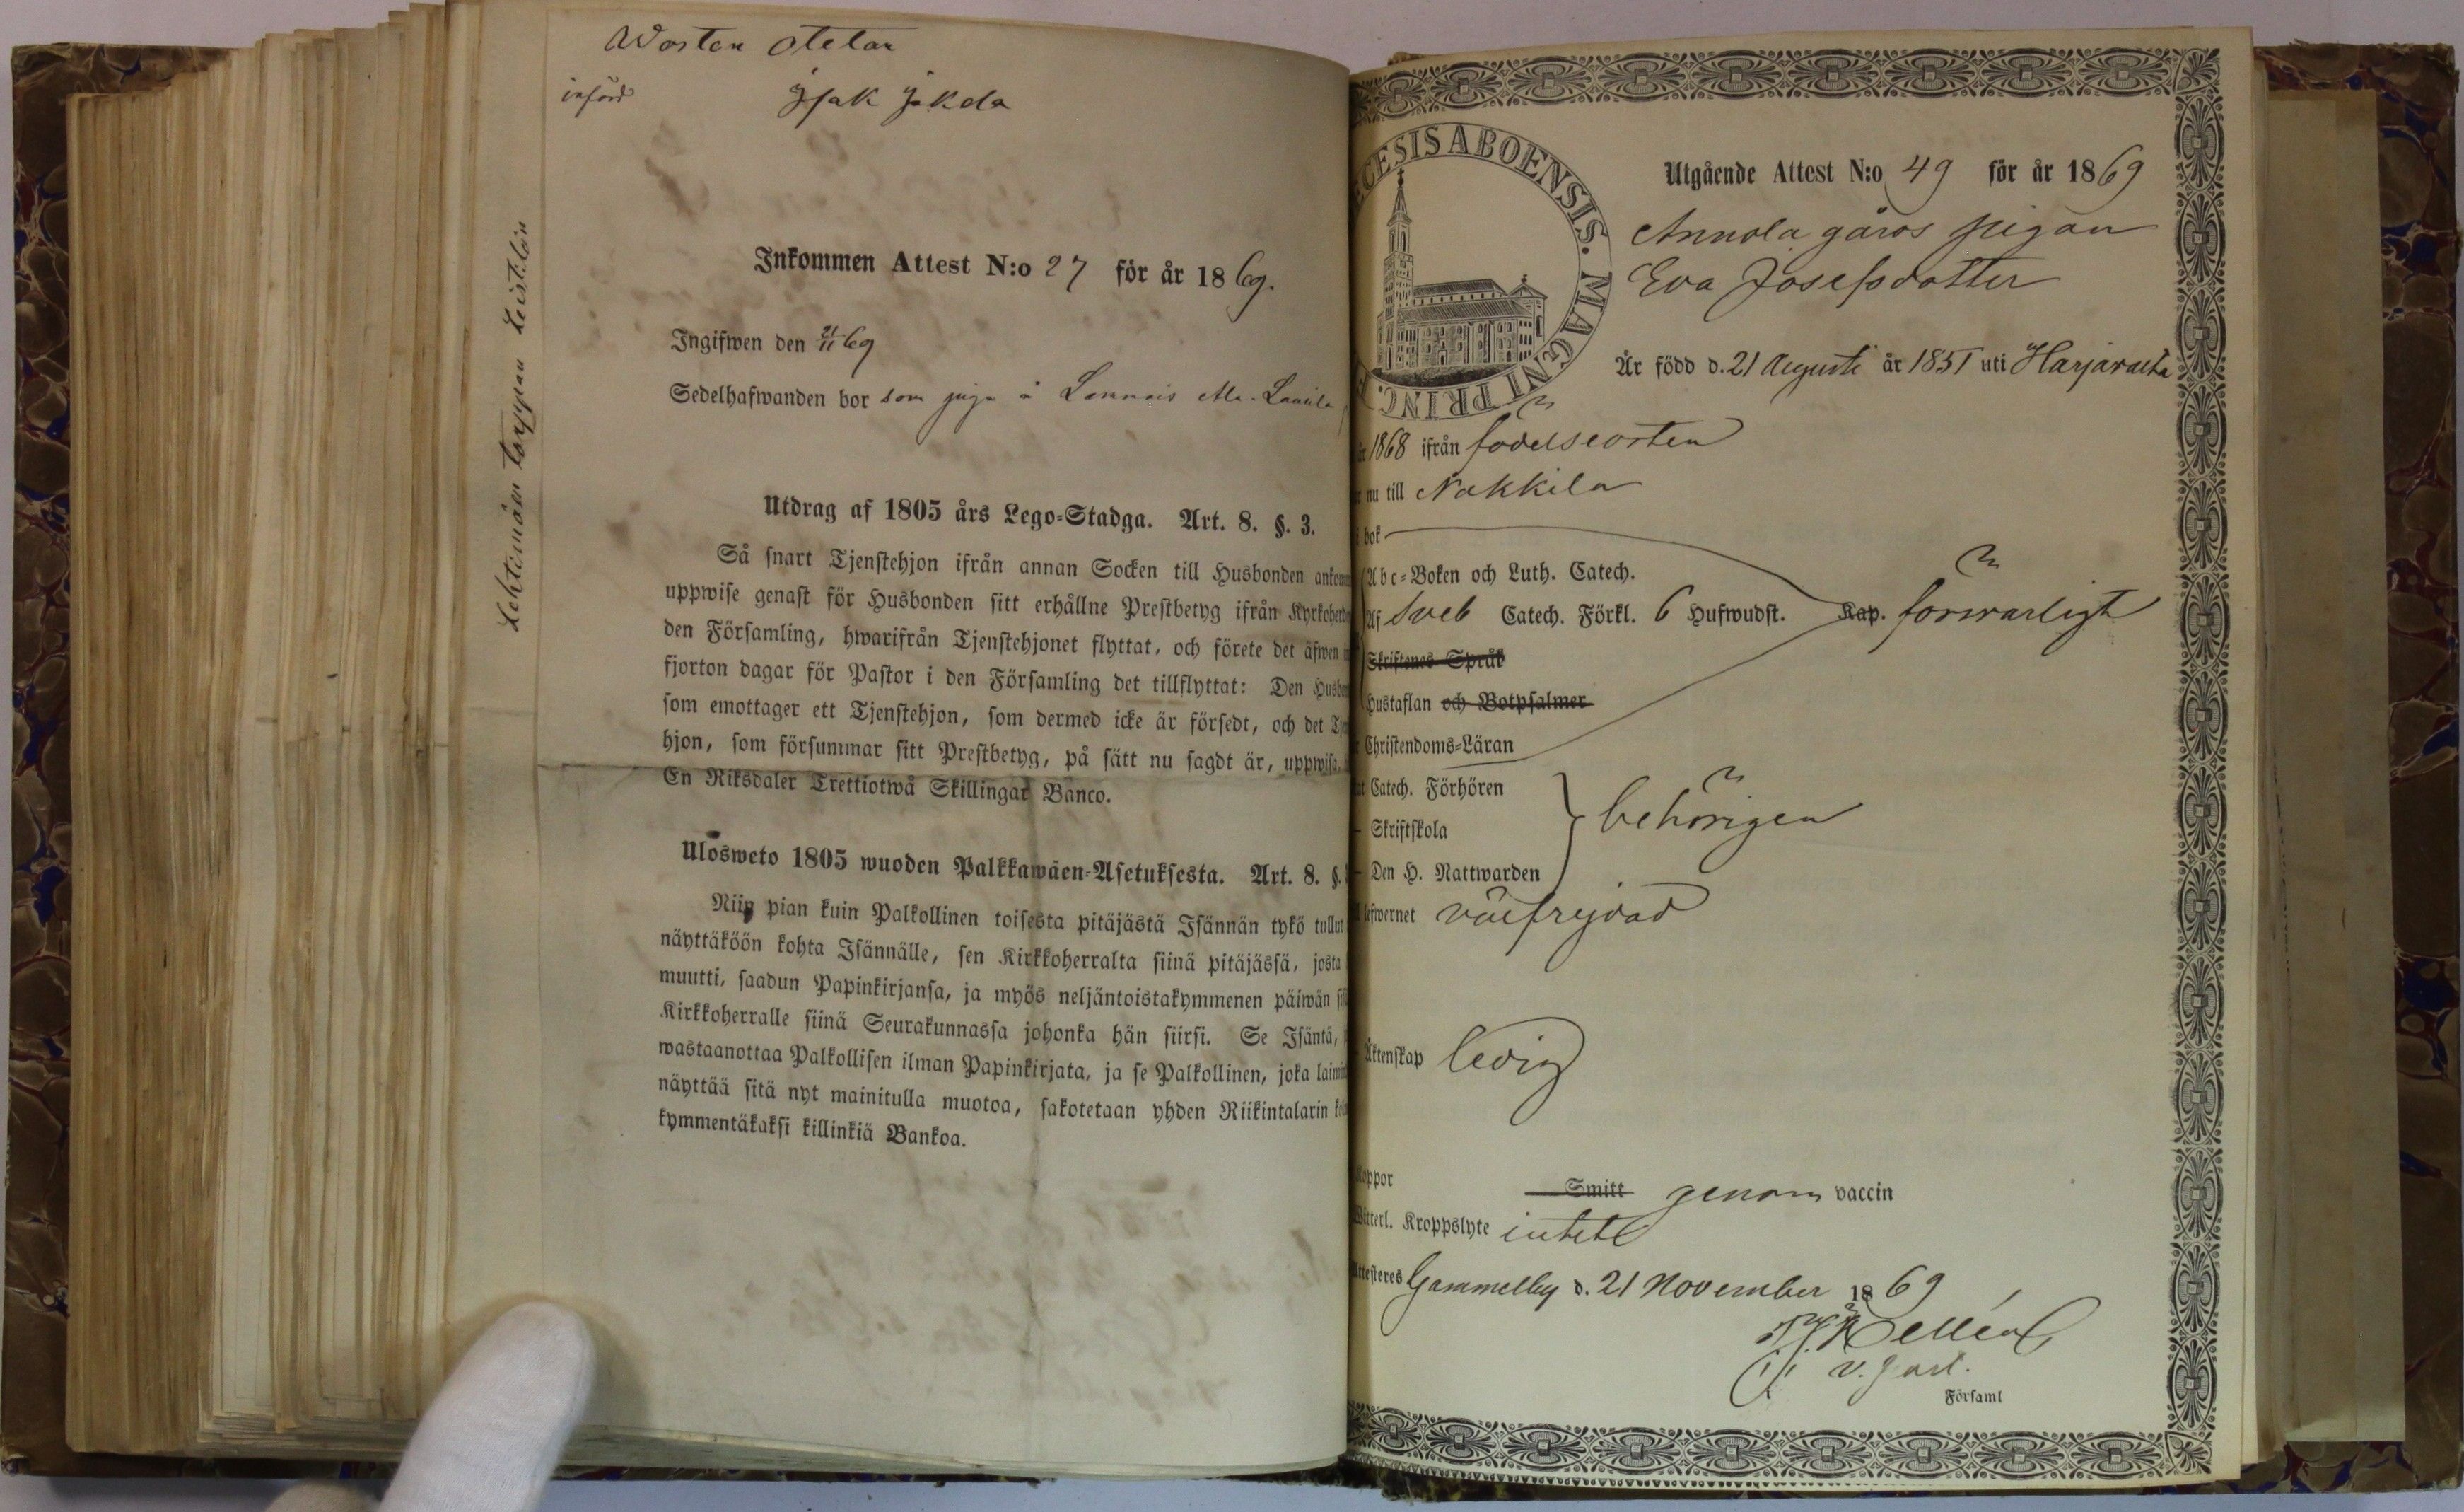 Worten otetan
införd
Jsak Jakola
Lehtimäen torppan Leistilän
Inkommen Attest N:o 27 för år 1869.
Ingifwen den 21/11 69
Sedelhafwanden bor som piga å Lammais Ala-Laurila
Utdrag af 1805 års Lego-Stadga. Art. 8. §. 3.
Så snart Tjenstehjon ifrån annan Socken till Husbonden ankomm
uppwise genast för Husbonden sitt erhållne Prestbetyg ifrån Kyrkoherde
den Församling, hwarifrån Tjenstehjonet flyttat, och förete det äfwen
fjorton dagar för Pastor i den Församling det tillflyttat: Den Husbon
som emottager ett Tjenstehjon, som dermed icke är försedt, och det Tjen
hjon, som försummar sitt Prestbetyg, på sätt nu sagdt är, uppwisa,
En Riksdaler Trettiotwå Skillingar Banco.
Ulosweto 1805 wuoden Palkkawäen-Asetuksesta. Art. 8. §.
Niin pian kuin Palkollinen toisesta pitäjästä Isännän tykö tullut
näyttäköön kohta Isännälle, sen Kirkkoherralta siinä pitäjässä, josta
muutti, saadun Papinkirjansa, ja myös neljäntoistakymmenen päiwän sis
Kirkkoherralle siinä Seurakunnassa johonka hän siirsi. Se Isäntä,
wastaanottaa Palkollisen ilman Papinkirjata, ja se Palkollinen, joka laimi
näyttää sitä nyt mainitulla muotoa, sakotetaan yhden Riikintalarin kol
kymmentäkaksi killinkiä Bankoa.
CESIS ABOENSIS. MAGNI PRINC.
Utgående Attest N:o 49 för år 1869
Annola gårds pigan
Eva Josefsdotter
Är född d. 21 Augusti år 1851 uti Harjavalta
år 1868 ifrån födelseorten
r nu till Nakkila
i bok
Abc-Boken och Luth. Catech.
Af Sveb Catech. Förkl. 6 Hufwudst. Kap. förswarligt
Skriftenes Språk
Hustaflan och Botpsalmer
Christendoms-Läran
Catech. Förhören
Skriftskola
behörigen
Den H. Nattwarden
lefwernet välfrejdad
Äktenskap ledig
oppor Smitt genom vaccin
Witterl. Kroppslyte intet
Attesteres Gammelby d. 21 November 1869
v. past.
Församl